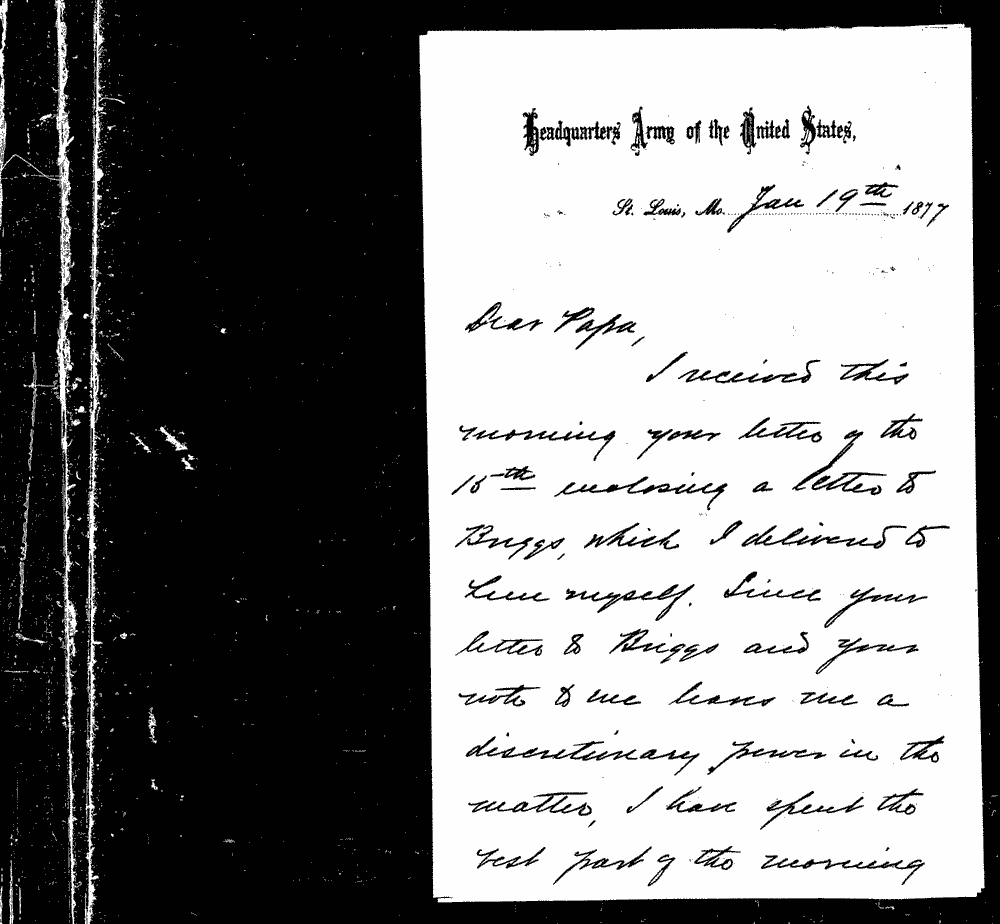 Headquarters Army of the United States,
St. Louis, Mo. Jan 19th 1877
Dear Papa,
I received this
morning your letter of the
15th enclosing a letter to
Briggs, which I delivered to
him myself. Since your
letter to Briggs and your
note to me leaves me a
discretionary power in the
matter, I have spent the
best part of the morning